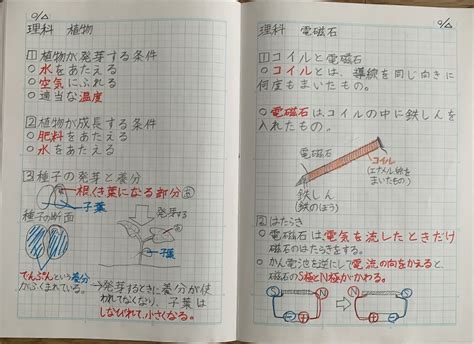 ○/△
理科 植物
1 植物が発芽する条件
○ 水をあたえる
○ 空気にふれる
○ 適当な温度
2 植物が成長する条件
○ 肥料をあたえる
○ 水をあたえる
3 種子の発芽と養分
根くき葉になる部分 あ
子葉
種子の断面
でんぷんという養分
がふくまれている。
発芽する
あ
子葉
→発芽するときに養分が使
われてなくなり、子葉は
しなびれて、小さくなる。
○/△
理科 電磁石
1 コイルと電磁石
○ コイルとは、導線を同じ向きに
何度もまいたもの。
○ 電磁石は、コイルの中に鉄しんを
入れたもの。
電磁石
コイル
(エナメル線を
まいたもの)
鉄しん
(鉄のぼう)
2 はたらき
○ 電磁石は電気を流したときだけ
磁石のはたらきをする。
○ かん電池を逆にして電流の向をかえると、
電磁石のS極とN極がかわる。
S N N S